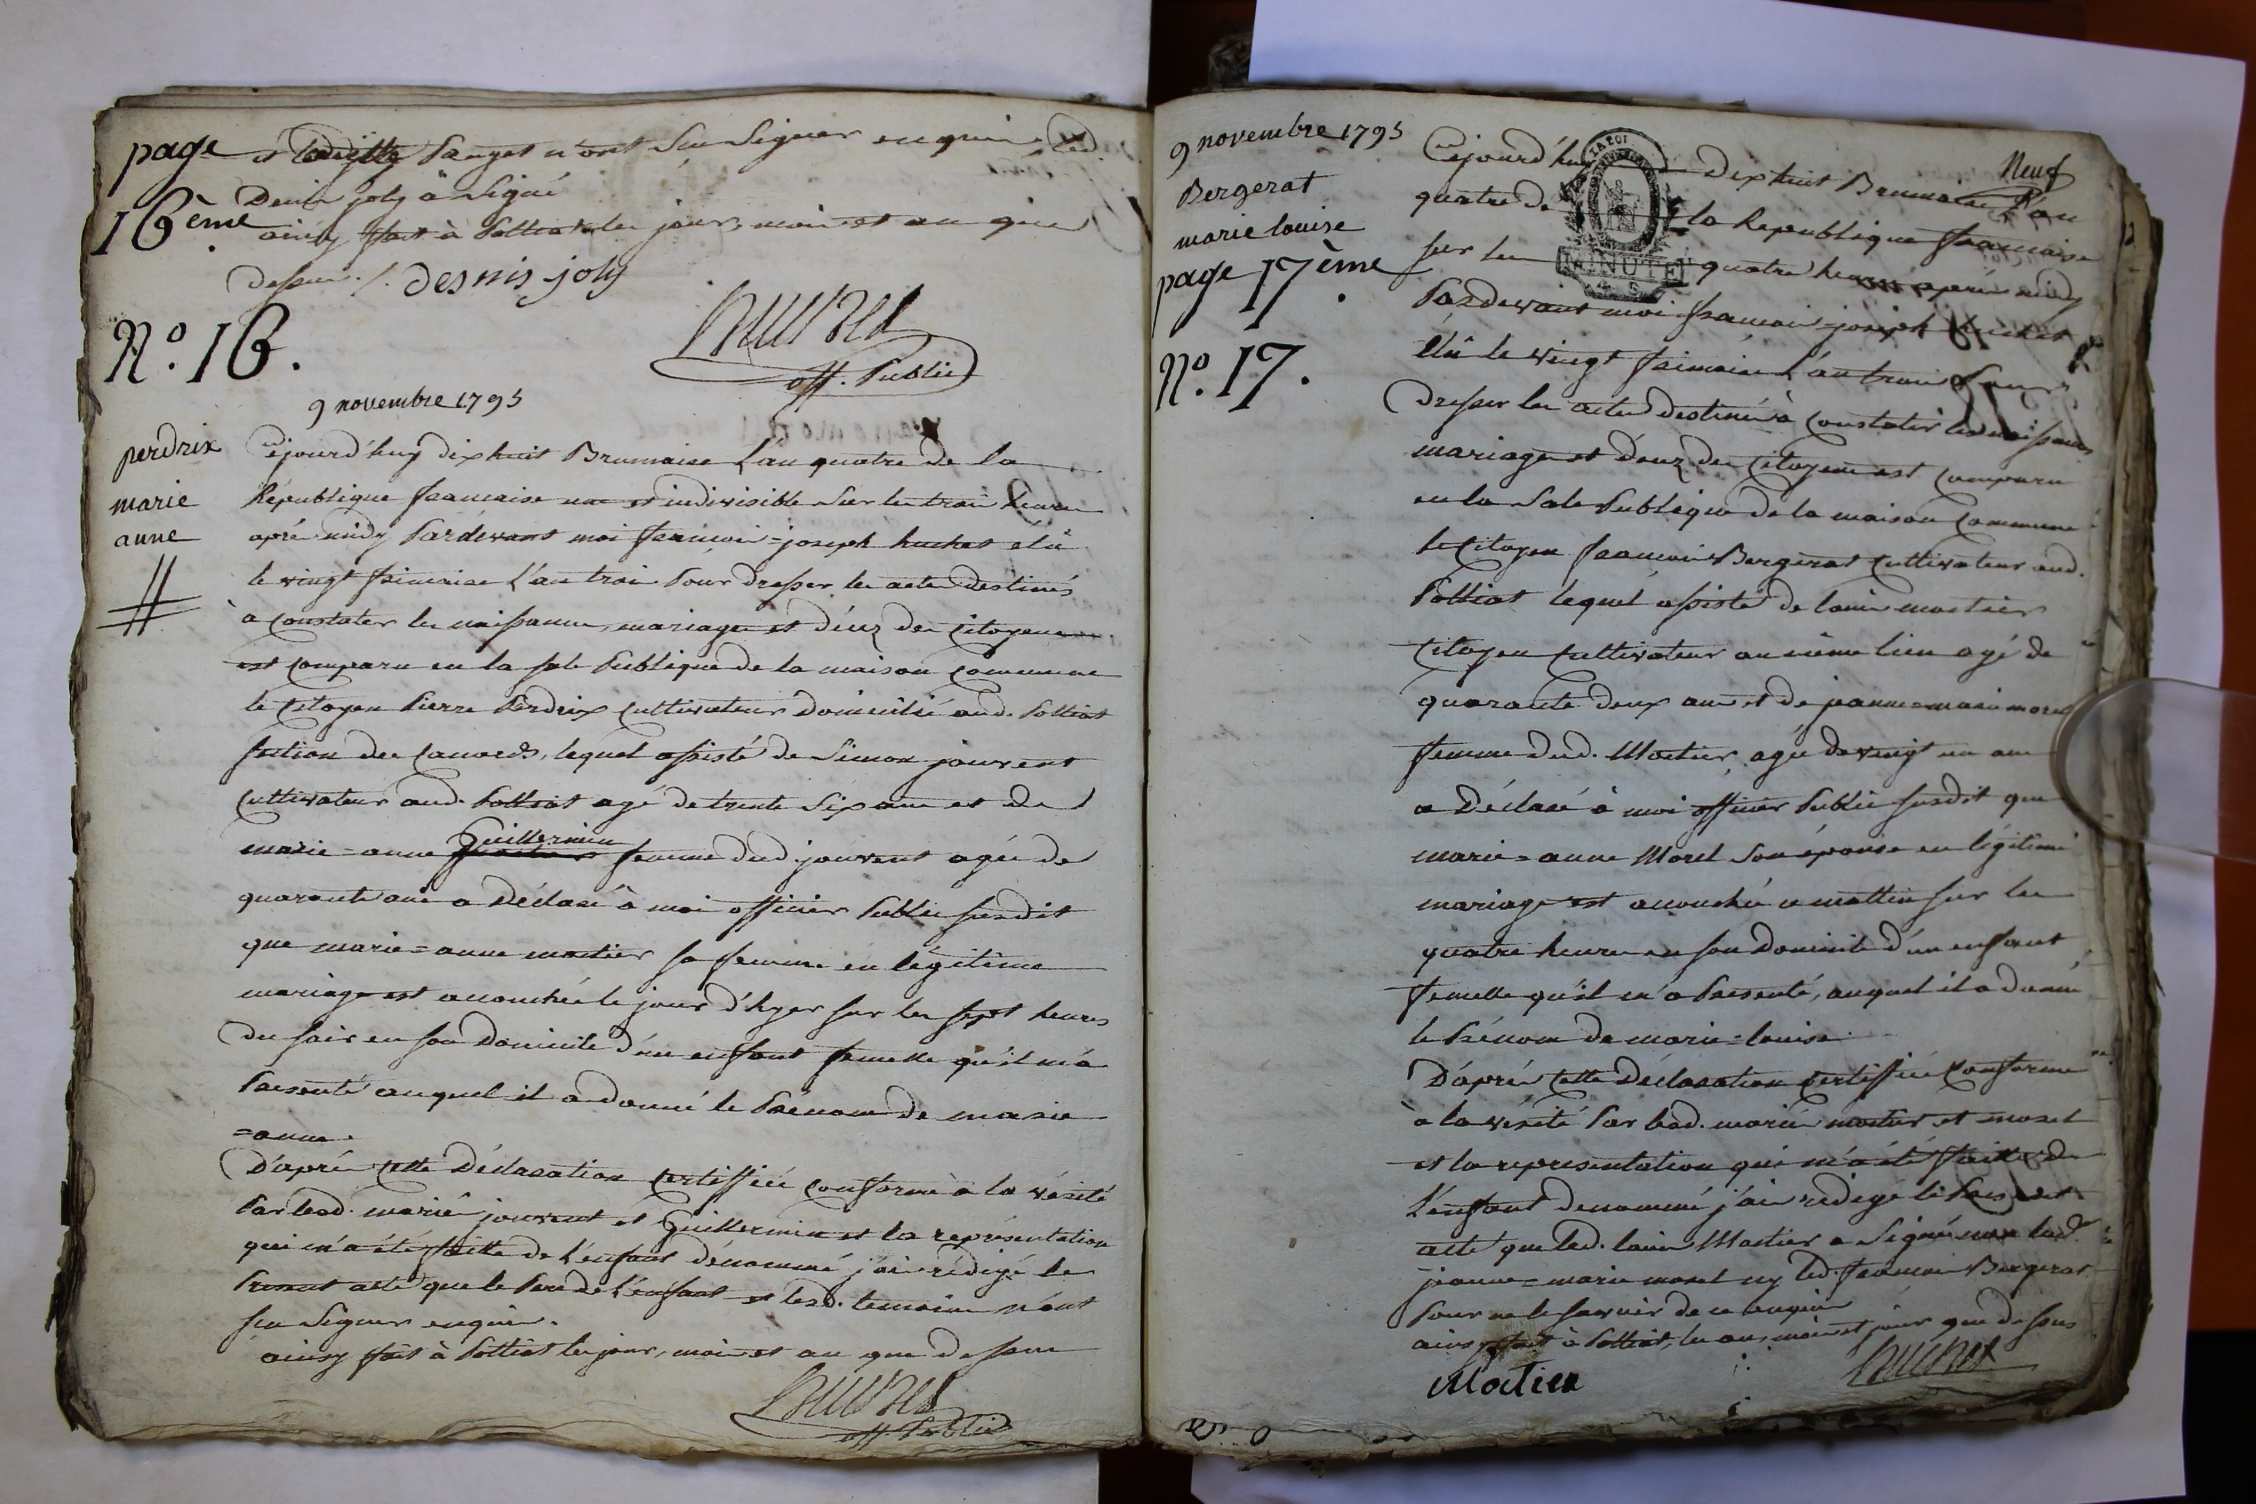 page 16ème
et Claudette Panget n'ont Scu Signer enquis led.
Denis joly à Signé
ainsy fait à Polliat les jour, mois et an que
dessus ./. desnis joly
huchet
off. Public
N.º 16.
9 novembre 1795
perdrix
marie
anne
Cejourd'huy dix huit Brumaire L'an quatre de la
République francaise une et indivisible Sur les trois heures
aprés midy Pardevant moi francois=joseph huchet elû
le vingt frimaire L'an trois Pour dresser les actes destinés
à Constater les naissances, mariages et décez des Citoyens
est Comparu en la sale Publique de la maison Commune
le Citoyen Pierre Perdrix Cultivateur Domicilié aud. Polliat
section des Canards, lequel assisté de Simon jouvent
Cultivateur aud. Polliat agé de trente Six ans et de
marie=anne Guillermin femme dud jouvent agée de
quarante ans a Déclaré à moi officier Public susdit
que marie=anne mortier sa femme en légitime
mariage est accouchée le jour d'hyer sur les sept heures
du soir en son Domicile d'un enfant femelle qu'il m'a
Présenté auquel il a donné le Prénom de marie
=anne.
D'aprés Cette Déclaration Certiffiée Conforme à la vérité
Par lesd. mariés jouvent et Guillermin et la représentation
qui m'a été faitte de L'enfant dénommé j'ai rédigé le
Present acte que le Pere de L'enfant et lesd. temoins n'ont
scu Signer enquis.
ainsy fait à Polliat les jour, mois et an que dessus
huchet
off. Public
9 novembre 1795
Bergerat
marie louise
page 17ème
N.º 17.
Neuf
LA LOI
MINUTE
Cejourd'huy dix huit Brumaire L'an
quatre de la Republique francaise
sur les quatre heures aprés midy
Pardevant moi francois=joseph huchet
Elû le vingt frimaire L'an trois Pour
Dresser les actes destinés à Constater les naissances
mariages et décez des Citoyens est Comparu
en la Sale Publique de la maison Commune
le Citoyen francois Bergerat Cultivateur aud.
Polliat lequel assisté de louis mortier
Citoyen Cultivateur au même lieu agé de
quarante deux ans et de jeanne=marie morel
femme dud. Mortier agée de vingt un ans
a Déclaré à moi officier Public susdit que
marie=anne Morel Son épouse en légitime
mariage est accouchée ce mattin sur les
quatre heures en son Domicile d'un enfant
femelle qu'il m'a Présenté, auquel il a donné
le Prénom de marie=louise.
D'aprés Cette Déclaration Certiffiée Conforme
à la vérité Par lesd. mariés mortier et morel
et la representation qui m'a été faitte de
L'enfant denommé j'ai rédigé le Présent
acte que led. louis Mortier a Signé non lad.
jeanne=marie morel ny led. francois Bergerat
Pour ne le scavoir de ce enquis
ainsy fait à Polliat, les an, mois et jour que dessus
Mortier
huchet